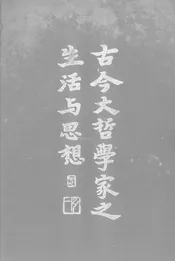 古今大哲學家之
生活与思想